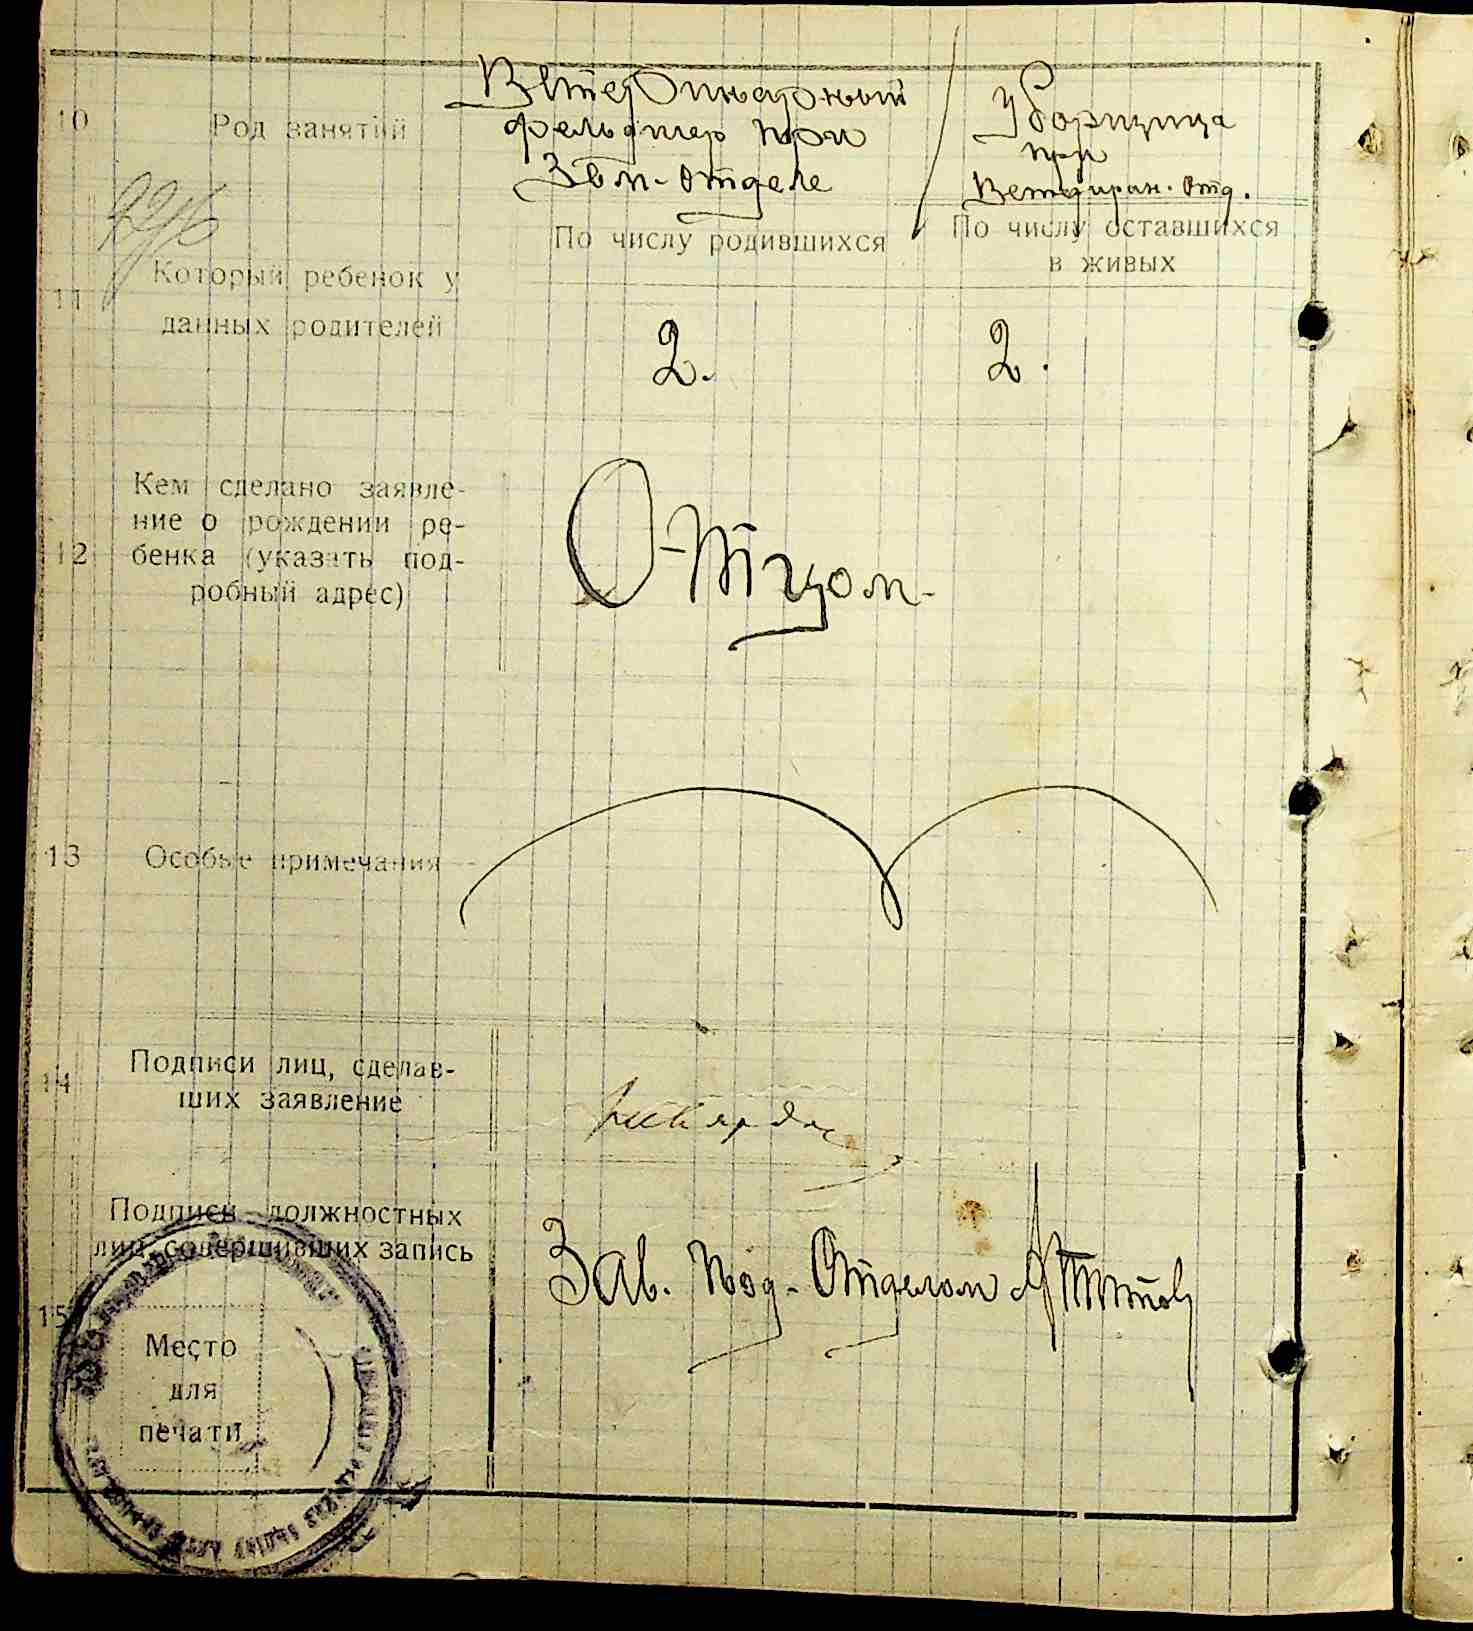 10
Род занятий
Ветеринарный
фельдшер при
отделе
Уборщица
при
отд.
По числу родившихся
По числу оставшихся
в живых
11
Который ребенок у
данных родителей
2.
2.
12
Кем сделано заявле-
ние о рождении ре-
бенка (указать под-
робный адрес)
О-тцом
13
Особые примечания
14
Подписи лиц, сделав-
ших заявление
15
Подписи должностных
лиц, совершивших запись
Зав. Под-Отделом
Место
для
печати